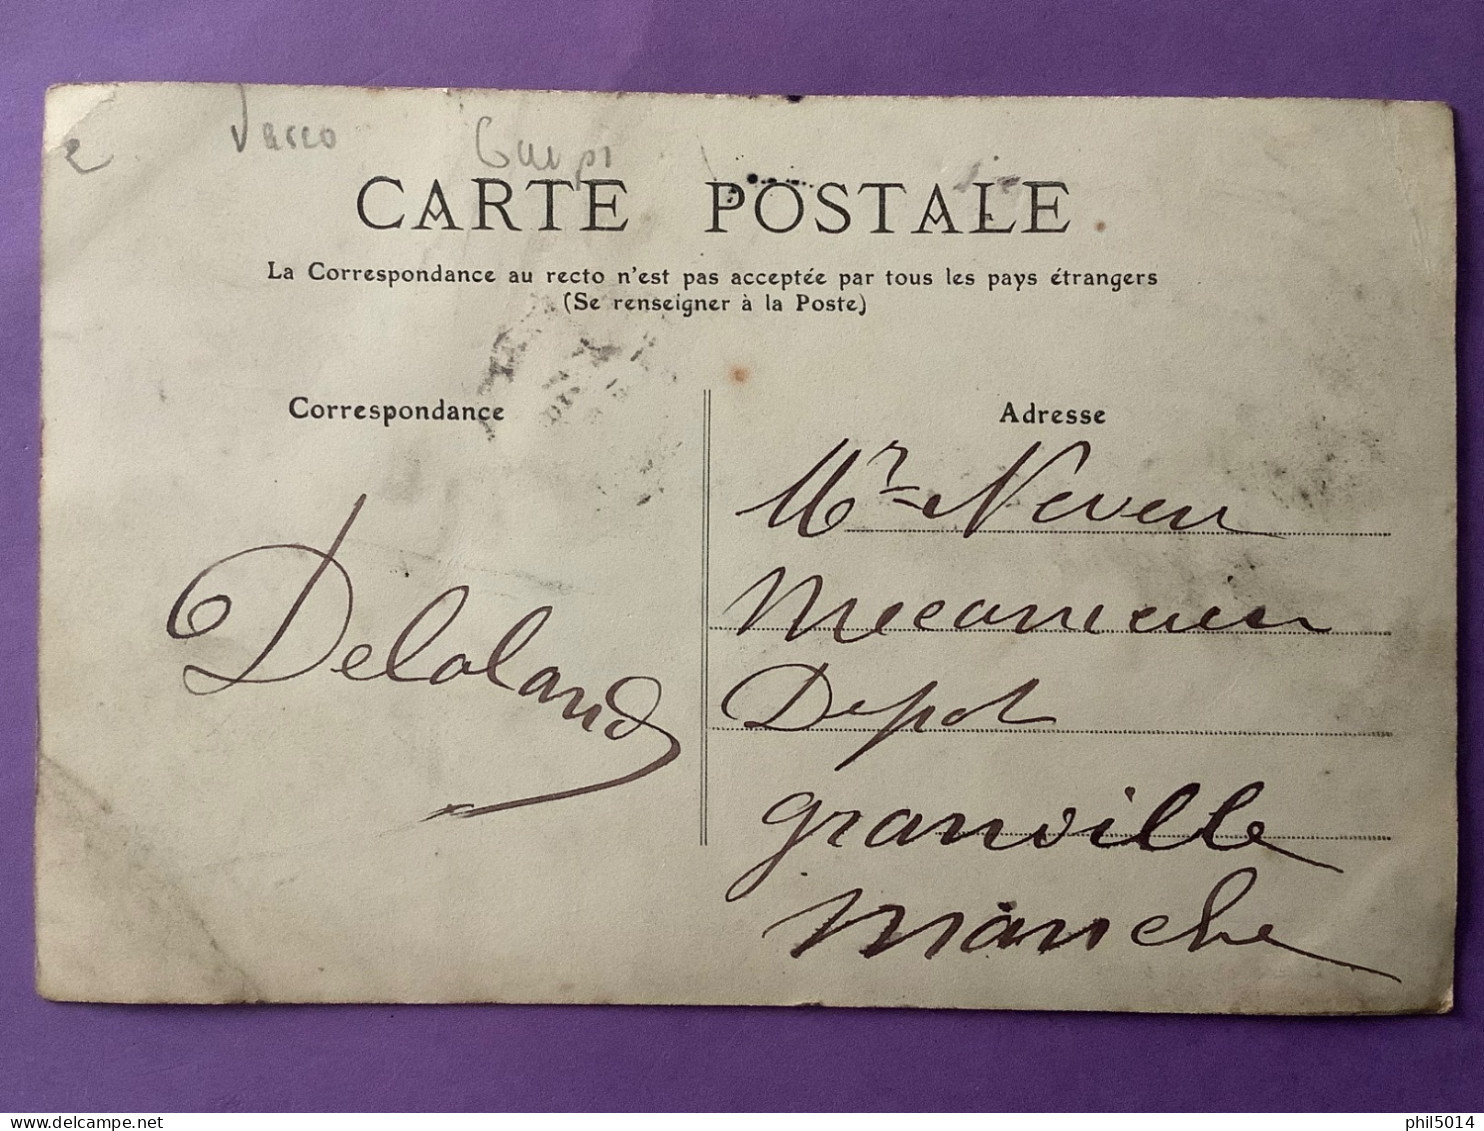 CARTE POSTALE
La Correspondance au recto n'est pas acceptée par tous les pays étrangers
(Se renseigner à la Poste)
Correspondance
Adresse
Mr Neven
Mecanicien
Depot
granville
Manche
Delaland
phil5014